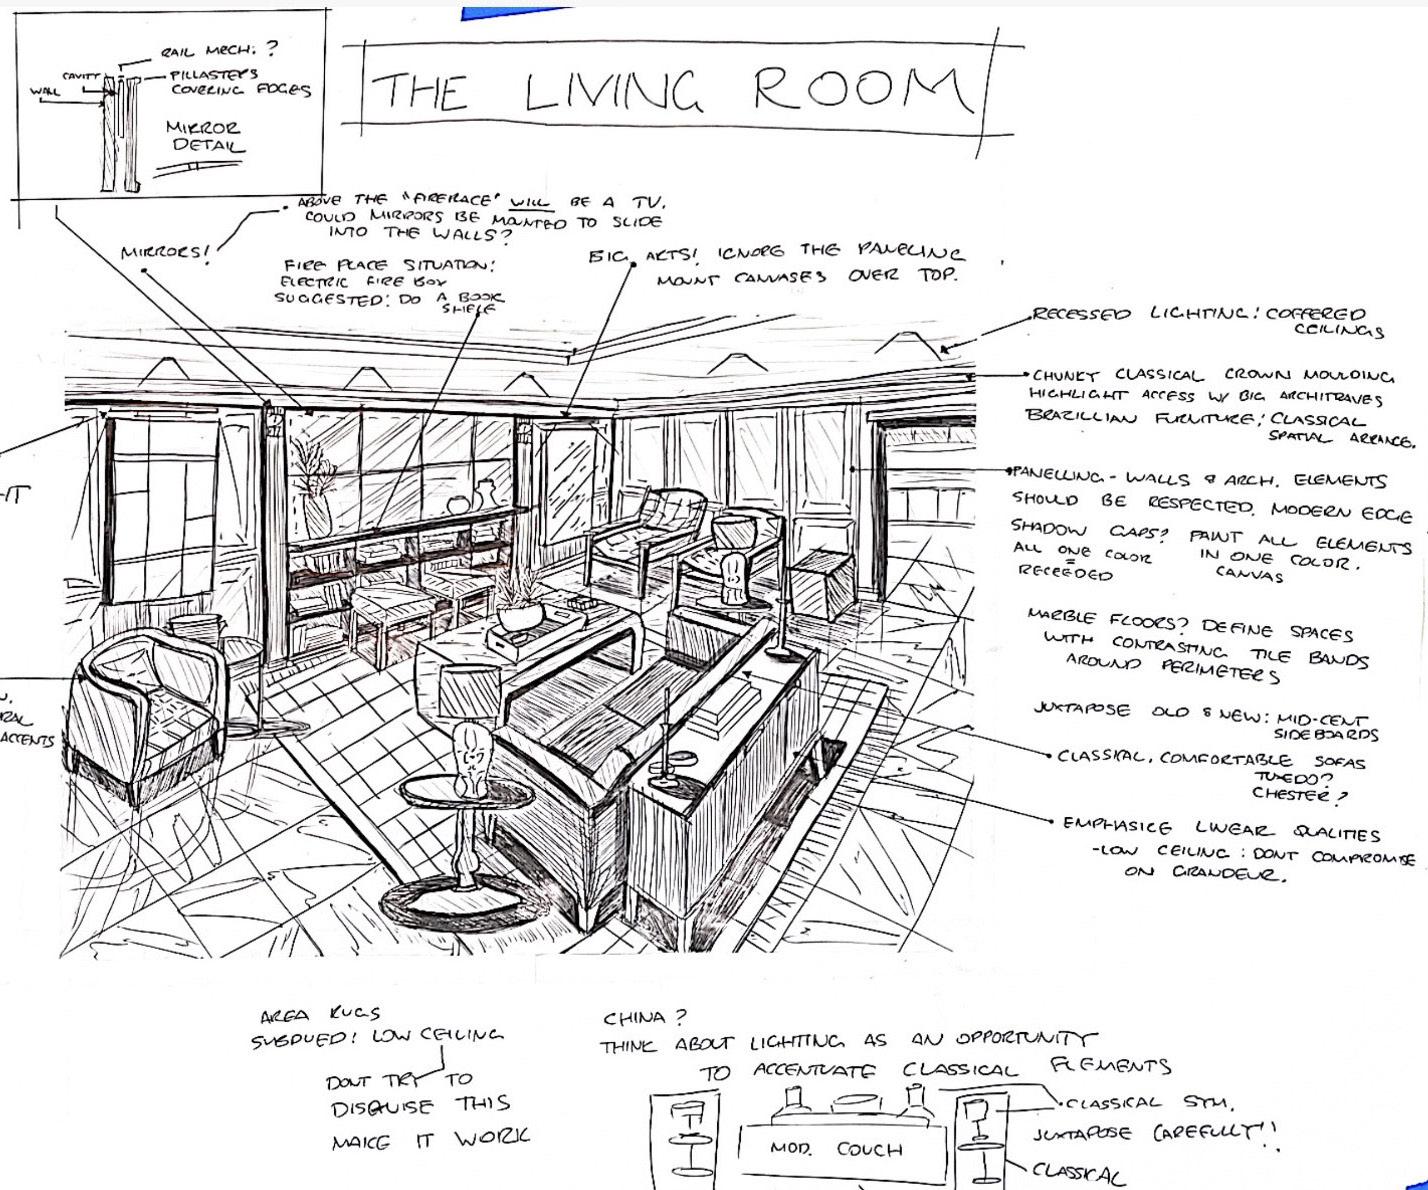 THE LIVING ROOM
RAIL MECH. ?
CAVITY
WALL
PILLASTERS
COVERING EDGES
MIRROR
DETAIL
ABOVE THE "FIREPLACE" WILL BE A TV.
COULD MIRRORS BE MOUNTED TO SLIDE
INTO THE WALLS?
MIRRORS!
FIRE PLACE SITUATION:
ELECTRIC FIRE BOX
SUGGESTED: DO A BOOK
SHELF
BIG ARTS! IGNORE THE PANELING
MOUNT CANVASES OVER TOP.
RECESSED LIGHTING! COFFERED
CEILINGS
CHUNKY CLASSICAL CROWN MOULDING
HIGHLIGHT ACCESS W/ BIG ARCHITRAVES
BRAZILLIAN FURNITURE; CLASSICAL
SPATIAL ARRANGE.
PANELLING - WALLS & ARCH. ELEMENTS
SHOULD BE RESPECTED. MODERN EDGE
SHADOW GAPS? PAINT ALL ELEMENTS
ALL ONE COLOR IN ONE COLOR.
RECEEDED CANVAS
MARBLE FLOORS? DEFINE SPACES
WITH CONTRASTING TILE BANDS
AROUND PERIMETERS
JUXTAPOSE OLD & NEW: MID-CENT
SIDEBOARDS
CLASSICAL, COMFORTABLE SOFAS
TUXEDO?
CHESTER?
EMPHASICE LINEAR QUALITIES
-LOW CEILING: DONT COMPROMISE
ON GRANDEUR.
ACCENTS
AREA RUGS
SUBDUED! LOW CEILING
DONT TRY TO
DISGUISE THIS
MAKE IT WORK
CHINA?
THINK ABOUT LIGHTING AS AN OPPORTUNITY
TO ACCENTUATE CLASSICAL ELEMENTS
MOD. COUCH
CLASSICAL SYM.
JUXTAPOSE CAREFULLY!!
CLASSICAL